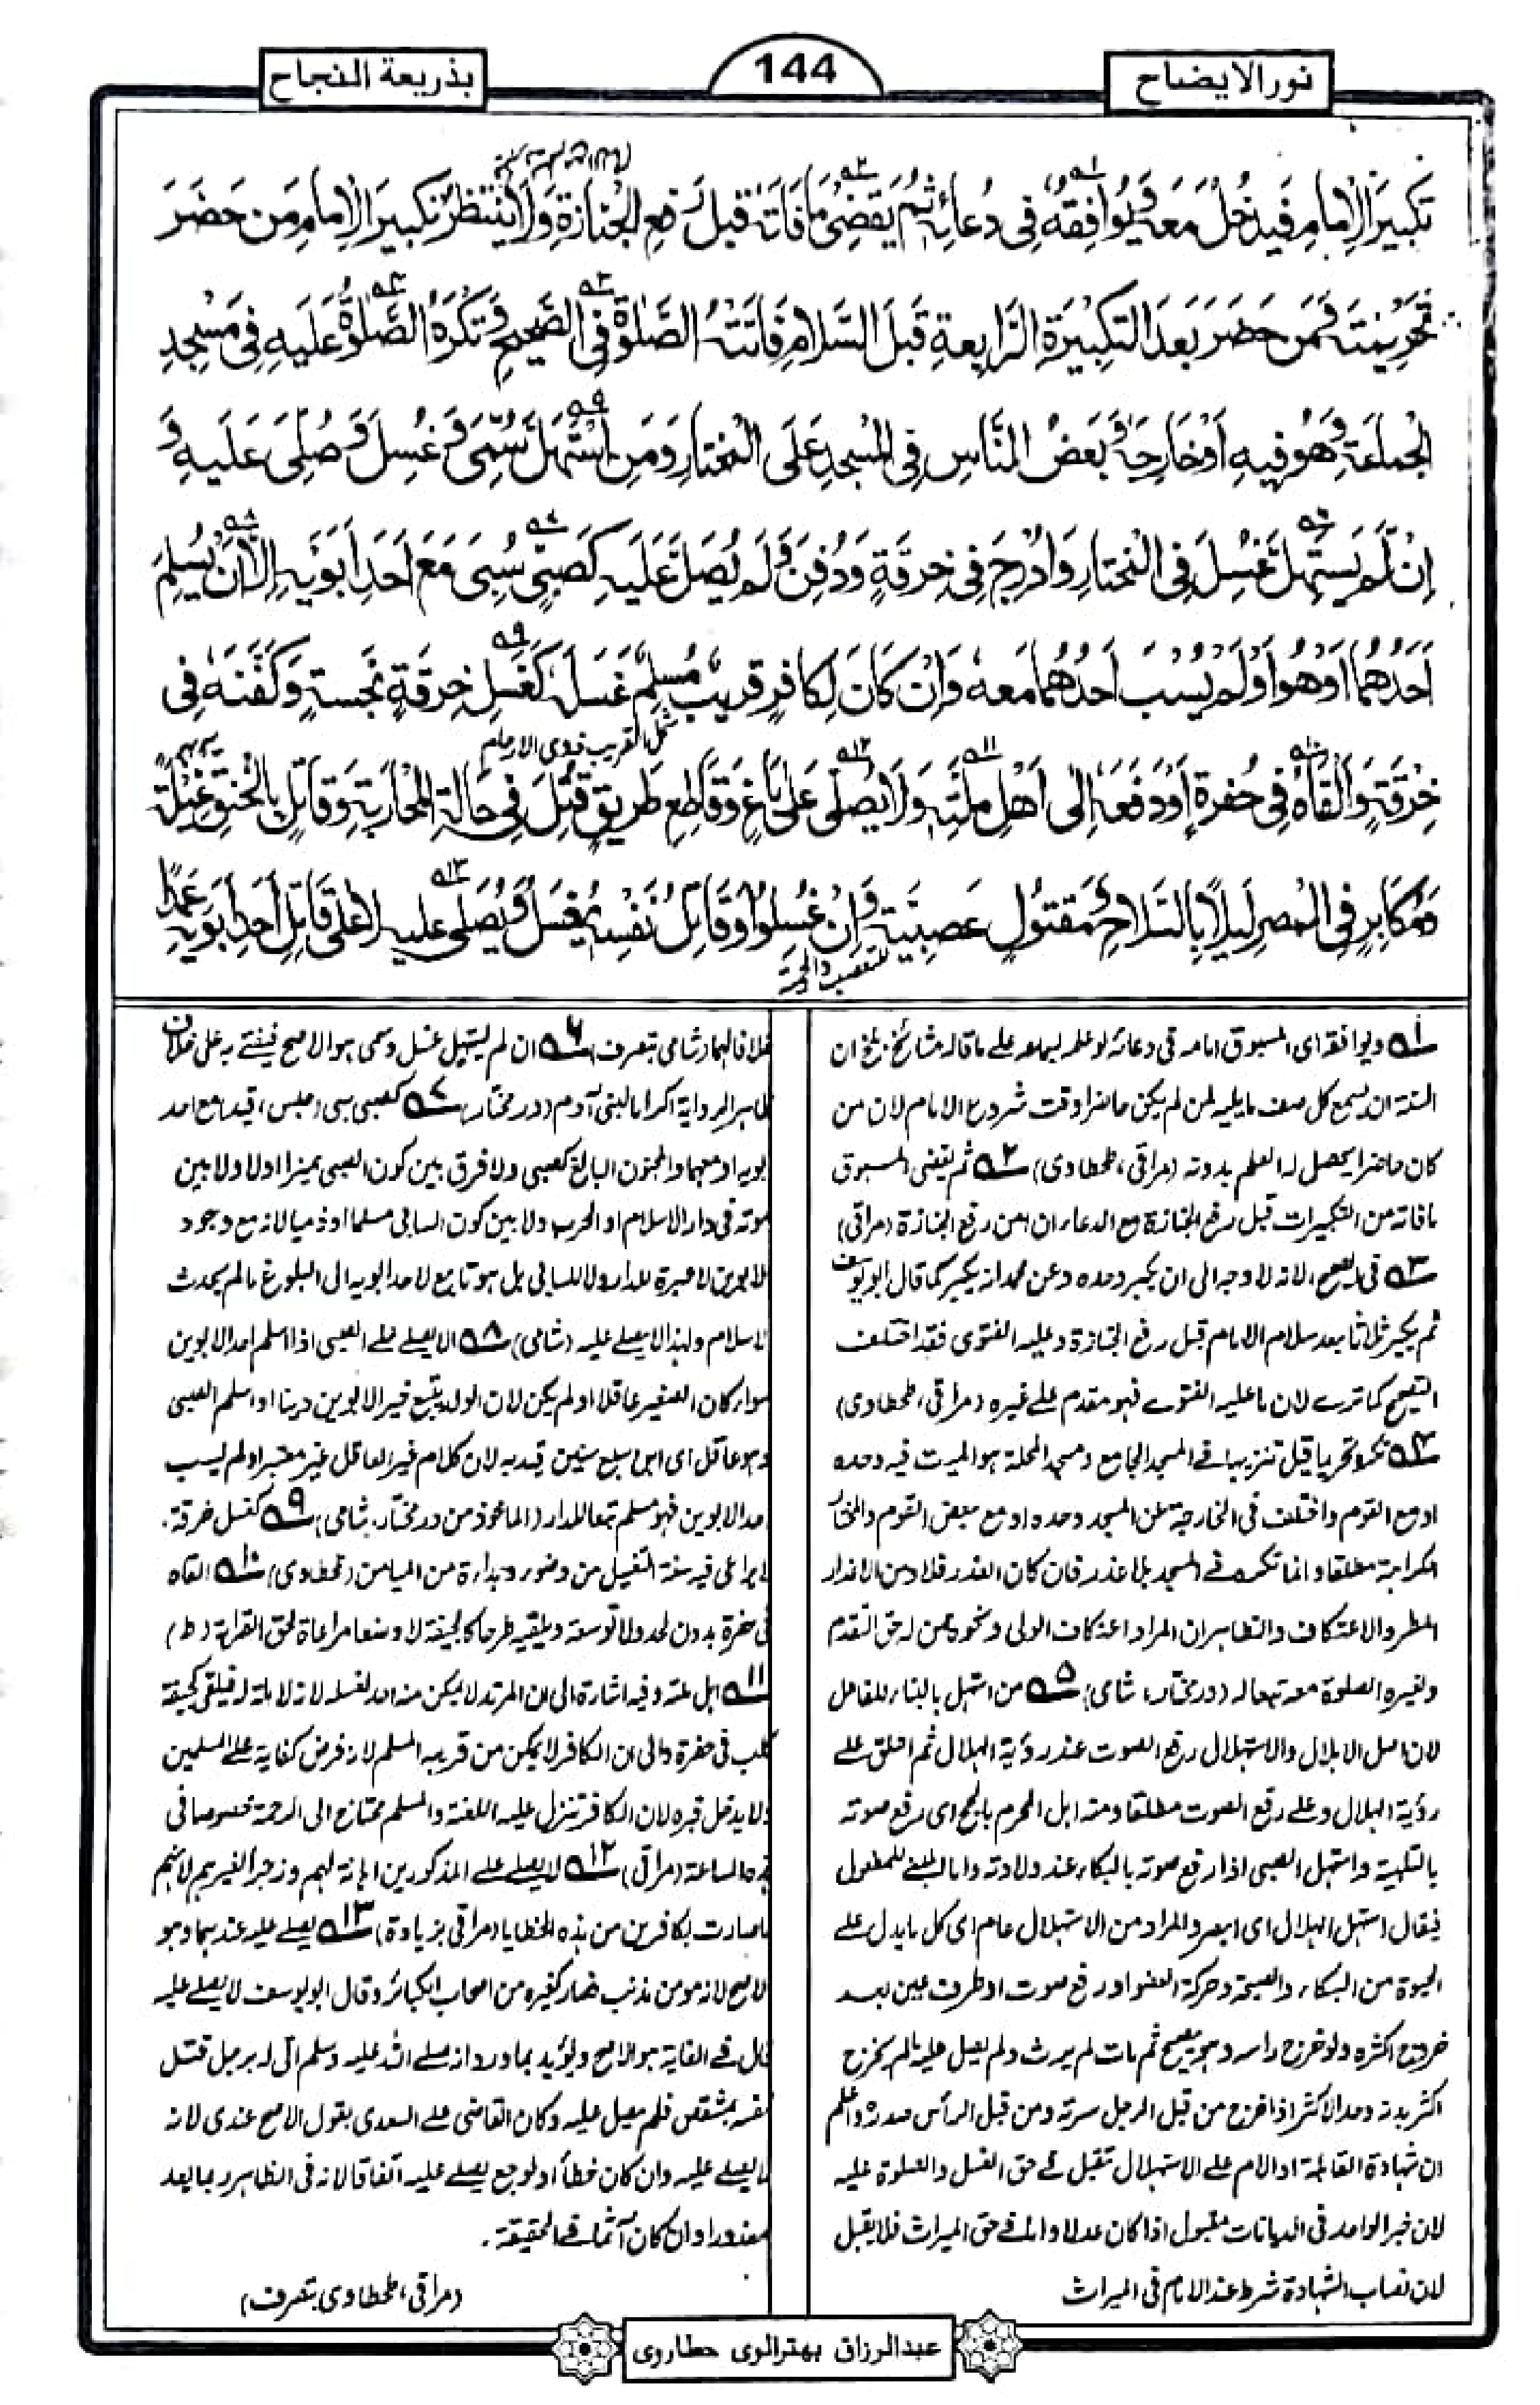 نورالايضاح
144
بذريعة النجاح
تَكبيرَ الْاِمامِ فَيدخُلُ مَعَه وَيُوَافِقُهُ فِي دُعَائِهٖ ثُمَّ يَقضِىْ مَا فَاتَهٗ قَبلَ رَفعِ الجَنازَةِ وَلَا يَنتَظِرُ تَكبيرَ الْاِمامِ مَن حَضَرَ
تَحرِيمَتَه وَمَن حَضَرَ بَعدَ التَّكبيرَةِ الرَّابِعَةِ قَبلَ السَّلَامِ فَاتَتهُ الصَّلٰوةُ فِى الصَّحِيحِ وَتُكرَهُ الصَّلٰوةُ عَلَيهِ فِى مَسجِدِ
الجَمَاعَةِ وَهُوَ فِيهِ اَو خَارِجَهٗ وَبَعضُ النَّاسِ فِى المَسجِدِ عَلَى المُختَارِ وَمَنِ اسْتَهَلَّ سُمِّىَ وَغُسِلَ وَصُلِّىَ عَلَيهِ وَ
اِنْ لَّم يَستَهِلَّ غُسِلَ فِى المُختَارِ وَاُدْرِجَ فِى خِرقَةٍ وَدُفِنَ وَلَم يُصَلَّ عَلَيهِ كَصَبِىٍّ سُبِىَ مَعَ اَحَدِ اَبَوَيهِ اِلَّا اَنْ يُسلِمَ
اَحَدُهُمَا اَوْ هُوَ اَوْ لَم يُسْبَ اَحَدُهُمَا مَعَهٗ وَاِنْ كَانَ لِكَافِرٍ قَرِيبٌ مُسلِمٌ غَسَلَهٗ كَغَسلِ خِرقَةٍ نَجِسَةٍ وَكَفَّنَهٗ فِى
شمل القريب ذوى الارحام
خِرقَةٍ وَاَلقَاهُ فِى حُفرَةٍ اَوْ دَفَعَهٗ اِلٰى اَهلِ مِلَّتِهٖ وَلَا يُصَلّٰى عَلٰى بَاغٍ وَقَاطِعِ طَرِيقٍ قُتِلَ فِى حَالَةِ المُحَارَبَةِ وَقَاتِلٍ بِالخَنقِ غِيلَةً
وَمُكَابِرٍ فِى المِصرِ لَيلًا بِالسِّلَاحِ وَمَقتُولٍ عَصَبِيَّةً وَاِنْ غُسِلُوا وَقَاتِلُ نَفسِهٖ يُغسَلُ وَيُصَلّٰى عَلَيهِ لَا عَلٰى قَاتِلِ اَحَدِ اَبَوَيهِ عَمَدًا
١ ويوافقه اى المسبوق امامه فى دعائه لو علم بسماعه على ما قاله مشائخ بلخ ان
السنة ان يسمع كل صف ما يليه لمن لم يكن حاضرا وقت شروع الامام لان من
كان حاضرا يحصل له العلم بدونه (مراقى، طحطاوى) ٢ ثم يقضى المسبوق
ما فاته من التكبيرات قبل رفع الجنازة مع الدعاء ان امن رفع الجنازة (مراقى)
٣ فى الصحيح، لانه لا وجه الى ان يكبر وحده وعن محمد انه يكبر كما قال ابو يوسف
ثم يكبر ثلاثا بعد سلام الامام قبل رفع الجنازة وعليه الفتوى فقد اختلف
التصحيح كما ترے لان ما عليه الفتوے فهو مقدم علے غيره (مراقى، طحطاوى)
٤ تكره تحريما قيل تنزيها فے المسجد الجامع ومسجد المحلة هو الميت فيه وحده
او مع القوم واختلف فى الخارجة عن المسجد وحده او مع بعض القوم والمختار
الكراهة مطلقا وانما تكره فے المسجد بلا عذر فان كان العذر فلا ومن الاعذار
المطر والاعتكاف والظاهر ان المراد اعتكاف الولى ونحوه ممن له حق التقدم
ولغيره الصلوة معه تبعا له (در مختار، شامى) ٥ من استهل بالبناء للفاعل
لان اصل الاهلال والاستهلال رفع الصوت عند رؤية الهلال ثم اطلق علے
رؤية الهلال وعلے رفع الصوت مطلقا ومنه اهل المحرم بالحج اى رفع صوته
بالتلبية واستهل الصبى اذا رفع صوته بالبكاء عند ولادته واما المبنے للمفعول
فيقال استهل الهلال اى ابصر والمراد من الاستهلال عام اى كل ما يدل علے
الحيوة من البكاء والصيحة وحركة العضو او رفع صوت او طرف عين بعد
خروج اكثره ولو خرج راسه وهو يصيح ثم مات لم يرث ولم يصل عليه ما لم يخرج
اكثر بدنه وحد الاكثر اذا خرج من قبل الرجل سرته ومن قبل الرأس صدره واعلم
ان شهادة القابلة او الام علے الاستهلال تقبل فے حق الغسل والصلوة عليه
لان خبر الواحد فى الديانات مقبول اذا كان عدلا واما فے حق الميراث فلا يقبل
لان نصاب الشهادة شرط عند الامام فى الميراث
خلافا لهما (شامى بتصرف) ٦ ان لم يستهل غسل وسمى هو الاصح فيفتے به على خلاف
ظاهر الرواية اكراما لبنى آدم (در مختار) ٧ كصبى سبى (حبس، قيد) مع احد
ابويه او معهما والمجنون البالغ كصبى ولا فرق بين كون الصبى مميزا او لا ولا بين
موته فى دار الاسلام او الحرب ولا بين كون السابى مسلما او ذميا لانه مع وجود
الابوين لا عبرة للدار ولا للسابى بل هو تابع لاحد ابويه الى البلوغ ما لم يحدث
اسلام ولهذا لا يصلے عليه (شامى) ٨ الا يصلے علے الصبى اذا اسلم احد الابوين
سواء كان الصغير عاقلا او لم يكن لان الولد يتبع خير الابوين دينا او اسلم الصبى
وهو عاقل اى ابن سبع سنين قيد به لان كلام غير العاقل غير معتبر او لم يسب
احد الابوين فهو مسلم تبعا للدار (الماخوذ من در مختار، شامى) ٩ كغسل خرقة،
لا يراعى فيه سنة التغسيل من وضوء وبداءة من الميامن (طحطاوى) ١٠ القاه
فى حفرة بدون لحد ولا توسعة ويلقيه طرحا كالجيفة لا وضعا مراعاة لحق القرابة (ط)
١١ اهل ملته وفيه اشارة الى ان المرتد لا يمكن منه احد لغسله لانه لا ملة له فيلقى كجيفة
كلب فى حفرة والى ان الكافر لا يمكن من قريبه المسلم لانه فرض كفاية علے المسلمين
ولا يدخل قبره لان الكافر تنزل عليه اللعنة والمسلم محتاج الى الرحمة خصوصا فى
هذه الساعة (مراقى) ١٢ لا يصلے علے المذكورين اهانة لهم وزجرا لغيرهم لانهم
ما صارت بكافرين من هذه الخطايا (مراقى بزيادة) ١٣ يصلے عليه عندهما وهو
الاصح لانه مومن مذنب فصار كغيره من اصحاب الكبائر وقال ابو يوسف لا يصلے عليه
قال فے الغاية هو الاصح ويؤيد بما ورد انه صلے الله عليه وسلم اتى له برجل قتل
نفسه بمشقص فلم يصل عليه وكان القاضى علے السعدى يقول الاصح عندى لانه
لا يصلے عليه وان كان خطأ او لوجع يصلے عليه اتفاقا لانه فى الظاهر بما يعد
معذورا وان كان آثما فے الحقيقة.
(مراقى، طحطاوى بتصرف)
عبدالرزاق بهترالوى حطاروى